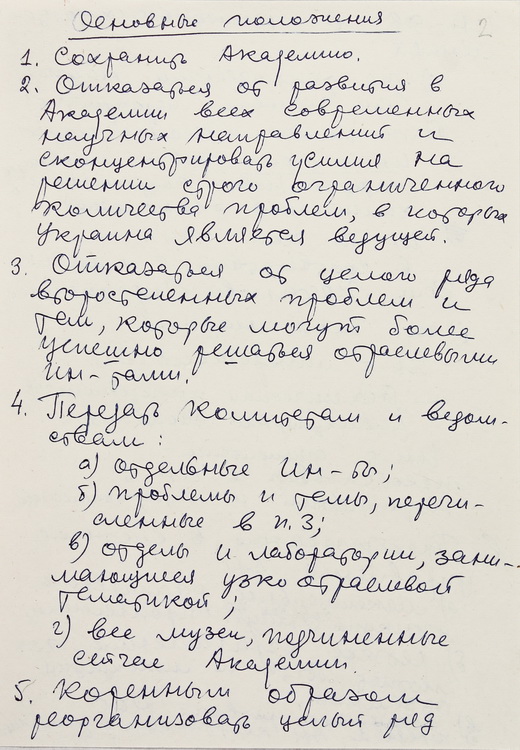 Основные положения
2
1. Сохранить Академию.
2. Отказаться от развития в
Академии всех современных
научных направлений и
сконцентрировать усилия на
решении строго ограниченного
количества проблем, в которых
Украина является ведущей.
3. Отказаться от целого ряда
второстепенных проблем и
тем, которые могут более
успешно решаться отраслевыми
ин-тами.
4. Передать комитетам и ведом-
ствам:
а) отдельные ин-ты;
б) проблемы и темы, перечи-
сленные в п. 3;
в) отделы и лаборатории, зани-
мающиеся узко отраслевой
тематикой;
г) все музеи, подчиненные
сейчас Академии.
5. Коренным образом
реорганизовать целый ряд